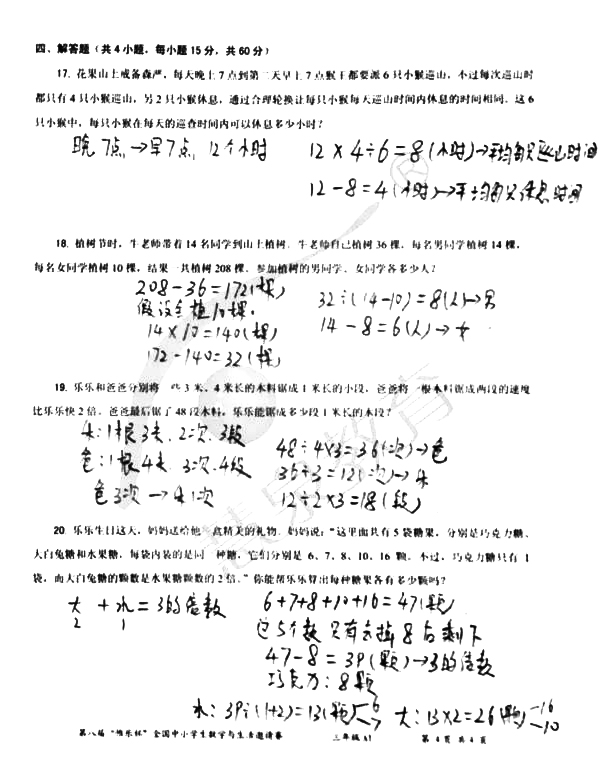 四、解答题（共4小题，每小题15分，共60分）
17. 花果山上戒备森严，每天晚上7点到第二天早上7点猴王都要派6只小猴巡山，不过每次巡山时
都只有4只小猴巡山，另2只小猴休息，通过合理轮换让每只小猴每天巡山时间内休息的时间相同。这6
只小猴中，每只小猴在每天的巡查时间内可以休息多少小时？
晚7点→早7点，12个小时
12×4÷6=8(小时)→平均每只巡山时间
12-8=4(小时)→平均每只休息时间
18. 植树节时，牛老师带着14名同学到山上植树。牛老师自己植树36棵，每名男同学植树14棵，
每名女同学植树10棵，结果一共植树208棵。参加植树的男同学、女同学各多少人？
208-36=172(棵)
假设全植10棵。
14×10=140(棵)
172-140=32(棵)
32÷(14-10)=8(人)→男
14-8=6(人)→女
19. 乐乐和爸爸分别将一些3米、4米长的木料锯成1米长的小段，爸爸将一根木料锯成两段的速度
比乐乐快2倍。爸爸最后锯了48段木料，乐乐能锯成多少段1米长的木段？
乐:1根3米、2次、3段
爸:1根4米、3次、4段
爸3次→乐1次
48÷4×3=36(次)→爸
36÷3=12(次)→乐
12÷2×3=18(段)
20. 乐乐生日这天，妈妈送给他一盒精美的礼物。妈妈说：“这里面共有5袋糖果，分别是巧克力糖、
大白兔糖和水果糖，每袋内装的是同一种糖，它们分别是6、7、8、10、16颗。不过，巧克力糖只有1
袋，而大白兔糖的颗数是水果糖颗数的2倍。”你能帮乐乐算出每种糖果各有多少颗吗？
大+水=3的倍数
2 1
6+7+8+10+16=47(颗)
这5个数只有去掉8后剩下
47-8=39(颗)→3的倍数
巧克力:8颗
水:39÷(1+2)=13(颗)-6-7
大:13×2=26(颗)-16-10
第八届“维乐杯”全国中小学生数学与生活邀请赛 三年级A1 第4页 共4页
慧乐教育
®